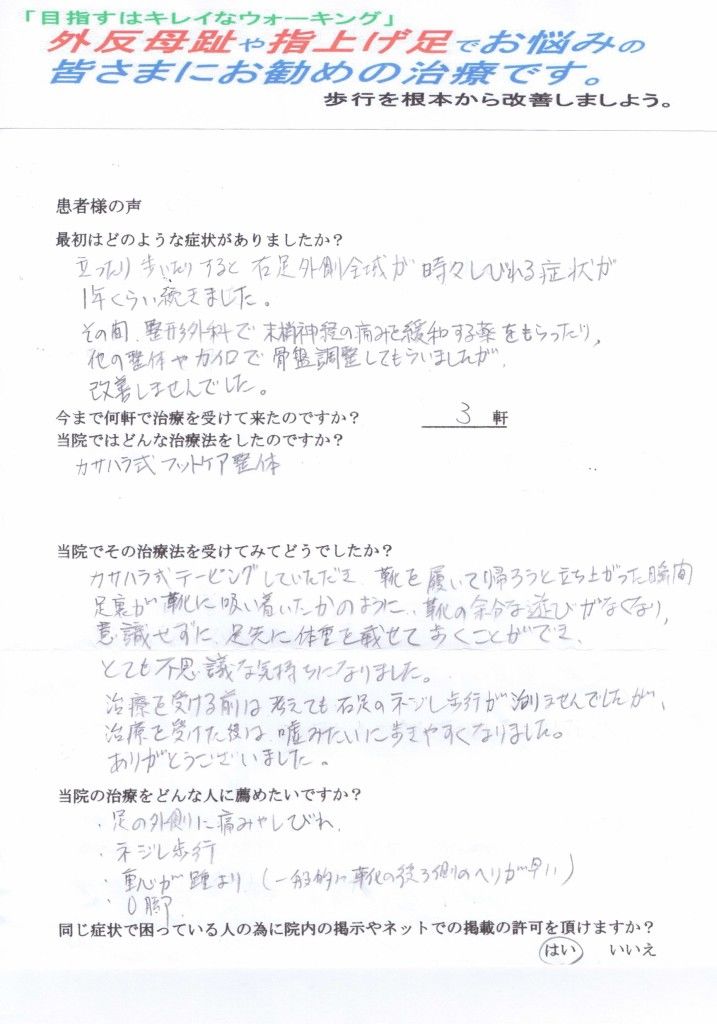 「目指すはキレイなウォーキング」
外反母趾や指上げ足でお悩みの
皆さまにお勧めの治療です。
歩行を根本から改善しましょう。
患者様の声
最初はどのような症状がありましたか？
立ったり歩いたりすると右足外側全域が時々しびれる症状が
1年くらい続きました。
その間、整形外科で末梢神経の痛みを緩和する薬をもらったり、
他の整体やカイロで骨盤調整してもらいましたが、
改善しませんでした。
今まで何軒で治療を受けて来たのですか？ 3 軒
当院ではどんな治療法をしたのですか？
カサハラ式フットケア整体
当院でその治療法を受けてみてどうでしたか？
カサハラ式テーピングしていただき、靴を履いて帰ろうと立ち上がった瞬間
足裏が靴に吸い着いたかのように、靴の余分な遊びがなくなり、
意識せずに、足先に体重を載せておくことができ、
とても不思議な気持ちになりました。
治療を受ける前は考えても右足のネジレ歩行が治りませんでしたが、
治療を受けた後は、嘘みたいに歩きやすくなりました。
ありがとうございました。
当院の治療をどんな人に薦めたいですか？
・足の外側に痛みやしびれ、
・ネジレ歩行
・重心が踵より（一般的に靴の後ろ側のヘリが早い）
・O脚
同じ症状で困っている人の為に院内の掲示やネットでの掲載の許可を頂けますか？
はい いいえ